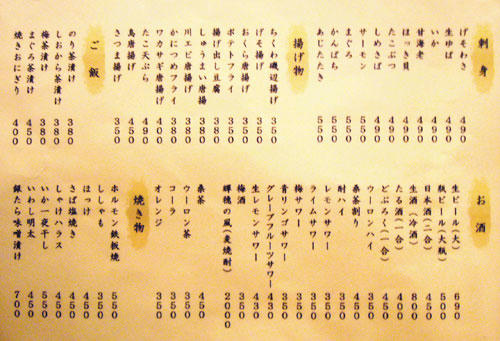 刺身
げそわさ 490
生ゆば 490
いか 490
甘海老 490
ほっき貝 490
たこぶつ 490
しめさば 490
サーモン 550
まぐろ 550
かんぱち 550
あじたたき 550
揚げ物
ちくわ磯辺揚げ 350
げそ揚げ 350
おくら唐揚げ 350
ポテトフライ 350
揚げ出し豆腐 380
しゅうまい唐揚 380
川エビ唐揚 380
かにつめフライ 380
ワカサギ唐揚げ 400
たこ天ぷら 490
鳥唐揚げ 450
さつま揚げ 350
ご飯
のり茶漬け 380
しおから茶漬け 380
梅茶漬け 380
まぐろ茶漬け 450
焼きおにぎり 400
お酒
生ビール(大) 690
瓶ビール(大瓶) 500
日本酒(二合) 450
生酒(冷酒) 800
たる酒(一合) 400
どぶろく(一合) 450
ウーロンハイ 350
桑茶割り 450
酎ハイ 350
レモンサワー 350
ライムサワー 350
梅サワー 350
青リンゴサワー 350
グレープフルーツサワー 430
生レモンサワー 430
梅酒 350
輝穂の風(麦焼酎) 2000
桑茶 450
ウーロン茶 350
コーラ 350
オレンジ 350
焼き物
ホルモン鉄板焼 550
ししゃも 350
ほっけ 450
さば塩焼き 450
しゃけハラス 450
いか一夜干し 550
いわし明太 450
銀たら味噌漬け 700